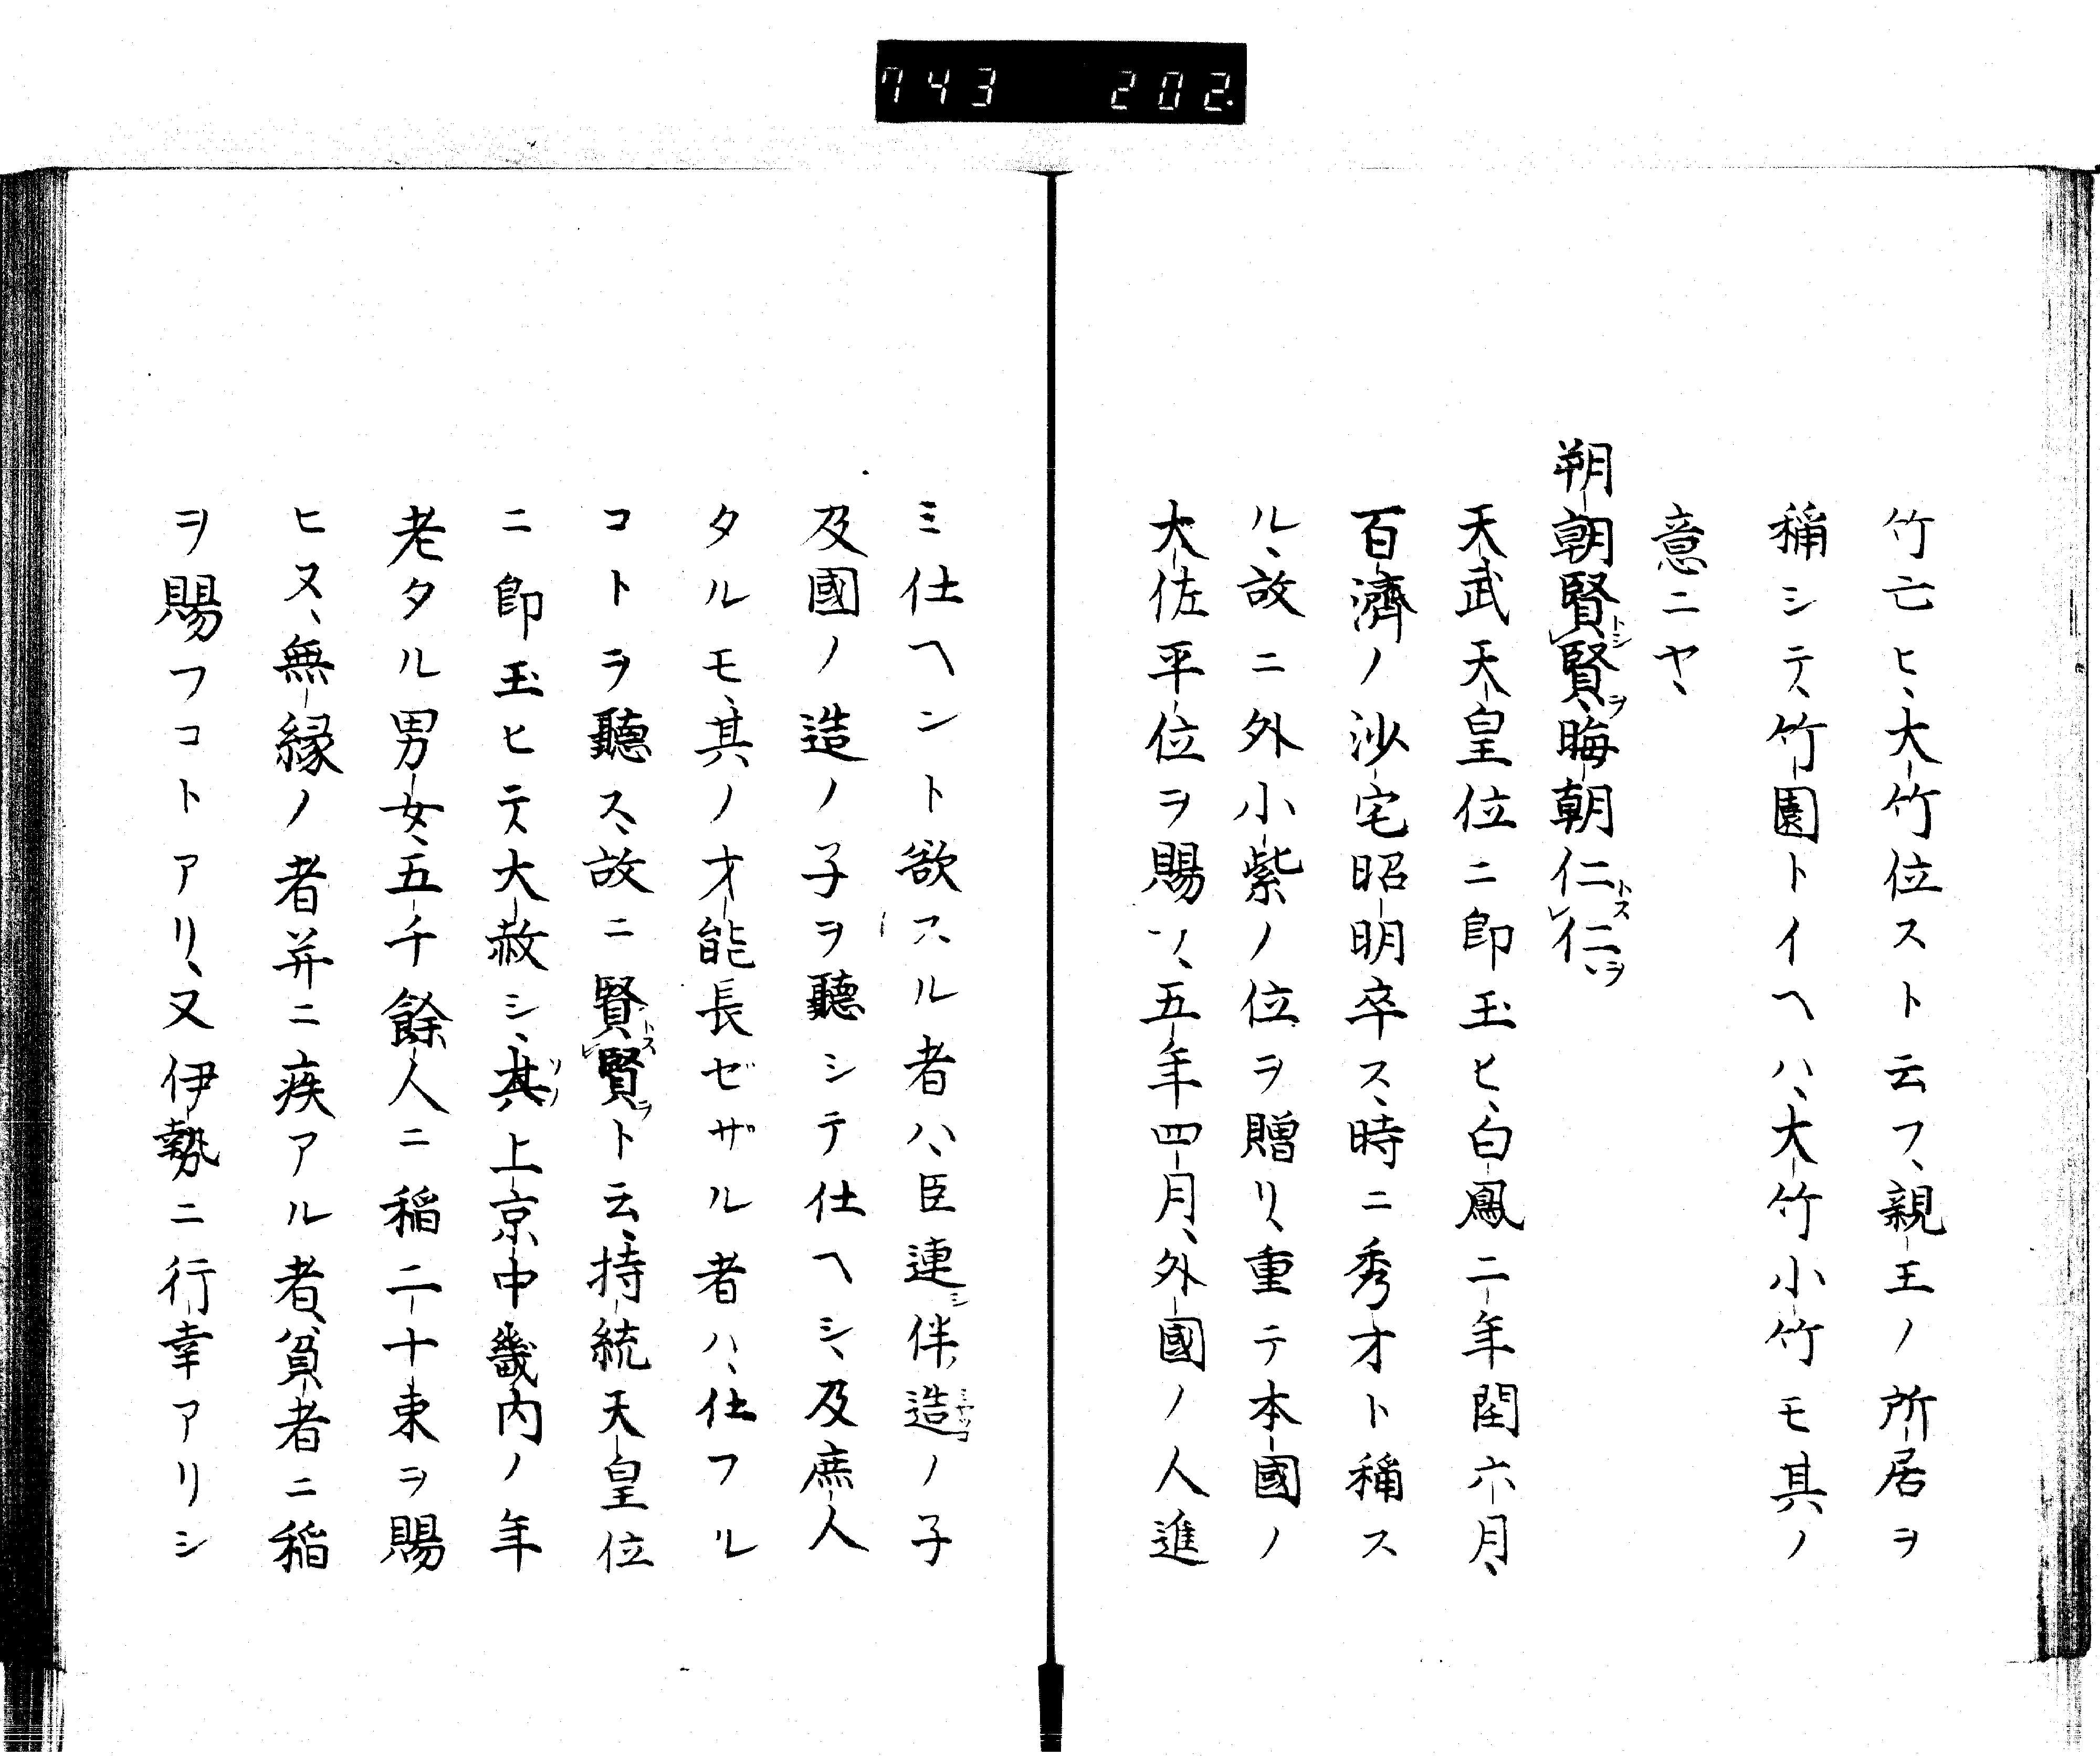 743 202.
竹亡ヒ、大竹位スト云フ、親王ノ所居ヲ
稱シテ、竹園トイヘハ、大竹小竹モ其ノ
意ニヤ、
朔朝賢トシレ賢ヲ、晦朝仁トスレ仁ヲ、
天武天皇位ニ即玉ヒ、白鳳二年閏六月、
百濟ノ沙宅昭明卒ス、時ニ秀才ト稱ス
ル、故ニ外小紫ノ位ヲ贈リ、重テ本國ノ
大佐平位ヲ賜フ、五年四月、外國ノ人進
ミ仕ヘント欲スル者ハ、臣連シ伴造ミヤツコノ子
及國ノ造ノ子ヲ聽シテ仕ヘシ、及庶人
タルモ、其ノ才能長ゼザル者ハ、仕フル
コトヲ聽ス、故ニ賢トスレ賢ヲト云、持統天皇位
ニ即玉ヒテ、大赦シ、其ソノ上京中畿内ノ年
老タル男女、五千餘人ニ稲二十束ヲ賜
ヒヌ、無縁ノ者并ニ疾アル者、貧者ニ稲
ヲ賜フコトアリ、又伊勢ニ行幸アリシ